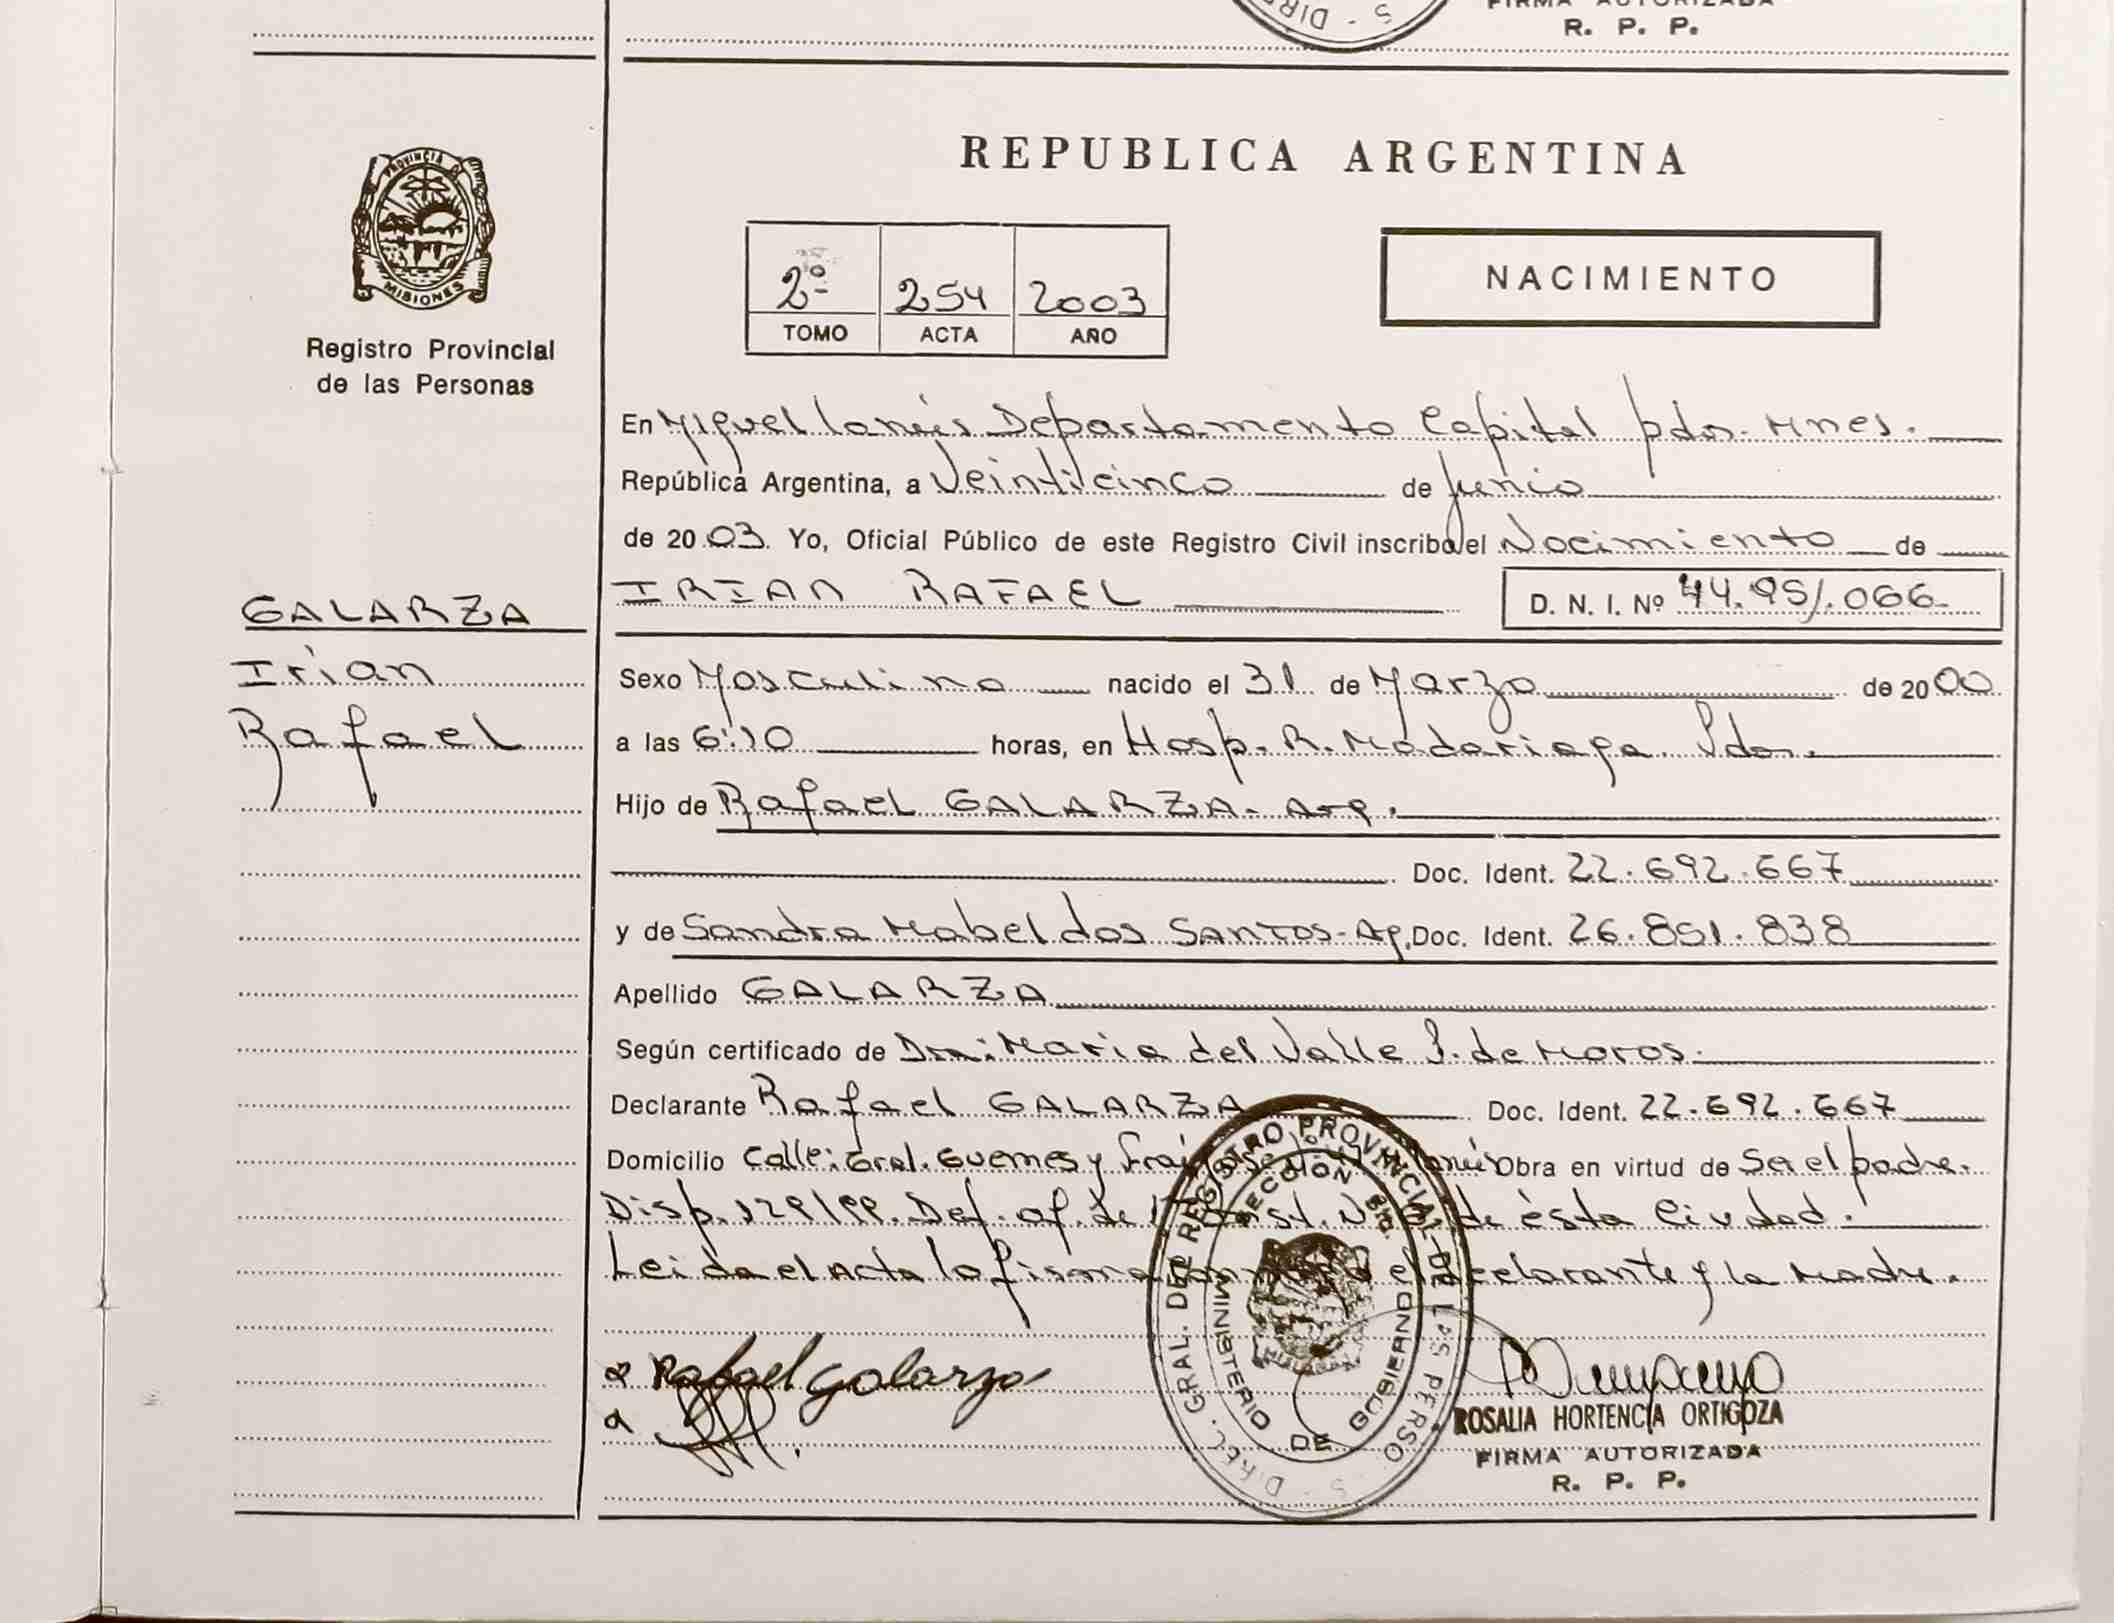 FIRMA AUTORIZADA
R. P. P.
PROVINCIA DE
MISIONES
Registro Provincial
de las Personas
REPUBLICA ARGENTINA
2º 254 2003
TOMO ACTA AÑO
NACIMIENTO
En Miguel Lanús Departamento Capital pdas. Mnes.
República Argentina, a Veinticinco de Junio
de 2003. Yo, Oficial Público de este Registro Civil inscribo el Nacimiento de
IRIAN RAFAEL D. N. I. Nº 44.951.066
GALARZA
Irian
Rafael
Sexo Masculino nacido el 31 de Marzo de 2000
a las 6:10 horas, en Hosp. R. Madariaga. Pdas.
Hijo de Rafael GALARZA - Arg.
Doc. Ident. 22.692.667
y de Sandra Mabel dos SANTOS - Ag. Doc. Ident. 26.851.838
Apellido GALARZA
Según certificado de Dra: Maria del Valle P. de Moros.
Declarante Rafael GALARZA Doc. Ident. 22.692.667
Domicilio Calle: Gral. Guemes y Obra en virtud de Ser el padre.
Disp. 129/99. Def. of. de de ésta Ciudad.
Leida el Acta la firma el declarante y la Madre.
Rafael Galarza
DIREC. GRAL. DEL REGISTRO PROVINCIAL DE LAS PERSO
SECCION
MINISTERIO DE GOBIERNO
ROSALIA HORTENCIA ORTIGOZA
FIRMA AUTORIZADA
R. P. P.